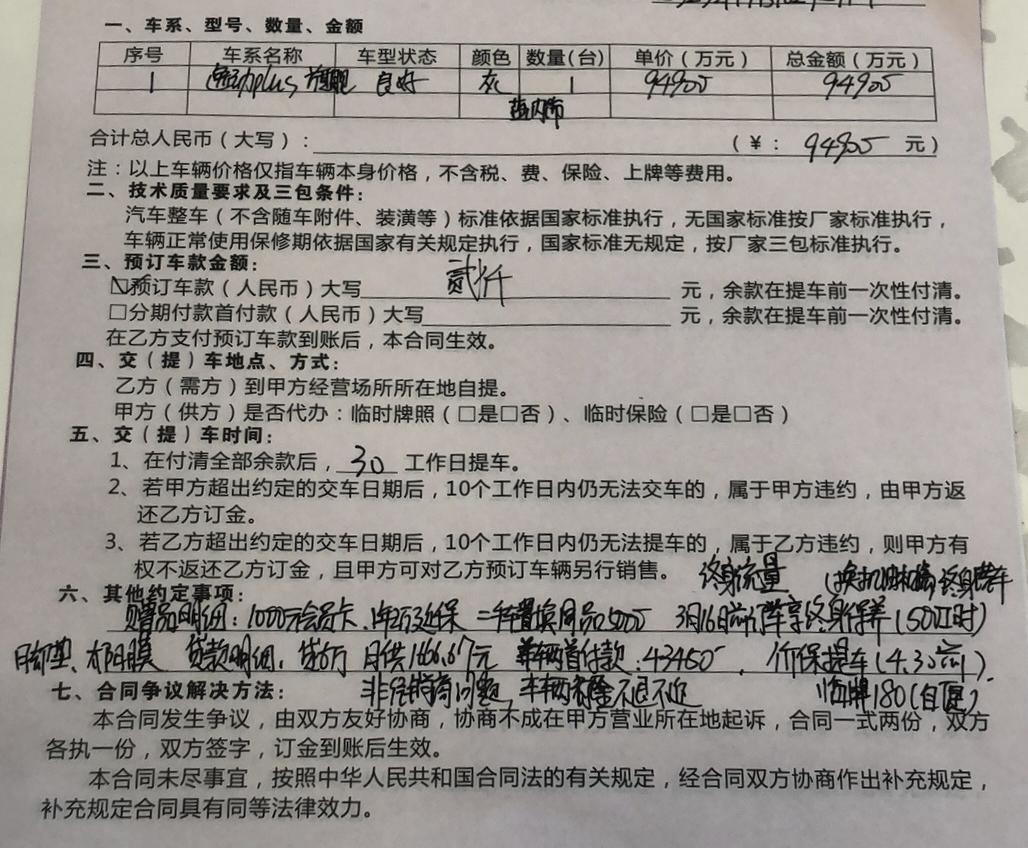 一、车系、型号、数量、金额
序号 车系名称 车型状态 颜色 数量(台) 单价(万元) 总金额(万元)
1 plus 旗舰 良好 灰 1 94900 94900
合计总人民币(大写): (¥: 94900 元)
注:以上车辆价格仅指车辆本身价格,不含税、费、保险、上牌等费用。
二、技术质量要求及三包条件:
汽车整车(不含随车附件、装潢等)标准依据国家标准执行,无国家标准按厂家标准执行,
车辆正常使用保修期依据国家有关规定执行,国家标准无规定,按厂家三包标准执行。
三、预订车款金额:
☑预订车款(人民币)大写 贰仟 元,余款在提车前一次性付清。
□分期付款首付款(人民币)大写 元,余款在提车前一次性付清。
在乙方支付预订车款到账后,本合同生效。
四、交(提)车地点、方式:
乙方(需方)到甲方经营场所所在地自提。
甲方(供方)是否代办:临时牌照(□是□否)、临时保险(□是□否)
五、交(提)车时间:
1、在付清全部余款后, 30 工作日提车。
2、若甲方超出约定的交车日期后,10个工作日内仍无法交车的,属于甲方违约,由甲方返
还乙方订金。
3、若乙方超出约定的交车日期后,10个工作日内仍无法提车的,属于乙方违约,则甲方有
权不返还乙方订金,且甲方可对乙方预订车辆另行销售。 终身流量
六、其他约定事项:
赠品明细:1000元会员卡 延保 二年置换 5000 3月16日前订车享终身保养(50工时)
脚垫、太阳膜 贷款明细: 月供1666.67元 车辆首付款:43450 价保提车(4.30前)
七、合同争议解决方法: 非经销商问题 不退不还 临牌180(自愿)
本合同发生争议,由双方友好协商,协商不成在甲方营业所在地起诉,合同一式两份,双方
各执一份,双方签字,订金到账后生效。
本合同未尽事宜,按照中华人民共和国合同法的有关规定,经合同双方协商作出补充规定,
补充规定合同具有同等法律效力。